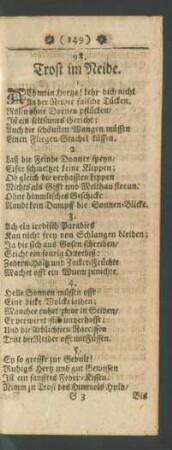 (149)
98.
Trost im Neide.
1.
Ach mein Hertze! kehr dich nicht
An der Neider falsche Tücken,
Rosen ohne Dornen pflücken/
Ist ein seltsames Gericht;
Auch die schönsten Wangen müssen
Einen Fliegen-Stachel küssen.
2.
Laß die Feinde Donner speyn,
Eifer schwetzet keine Klippen;
Ob gleich die verhaßten Lippen
Nichts als Gifft und Mehlthau streun.
Ohne himmlisches Geschicke
Raubt kein Dampff die Sonnen-Blicke.
3.
Ach ein irrdisch Paradies
Kan nicht frey von Schlangen bleiben;
Ja die sich aus Gosen schreiben,
Steckt
Cedern-Holtz und Zucker-Früchte
Machet offt ein Wurm zunichte.
4.
Helle Sonnen müssen offt
Eine dicke Wolcke leiden;
Mancher ruhet zwar in Seiden,
Er verwerst sich unverhofft;
Und die lieblichsten Narcissen
Tritt der Neider offt mit Füssen.
5.
Ey so greiffe zur Gedult!
Ruhigs Hertz und gut Gewissen
Ist ein sanfftes Feder-Küssen:
Nimm zu Trost des Himmels Huld/
G 3 Bis